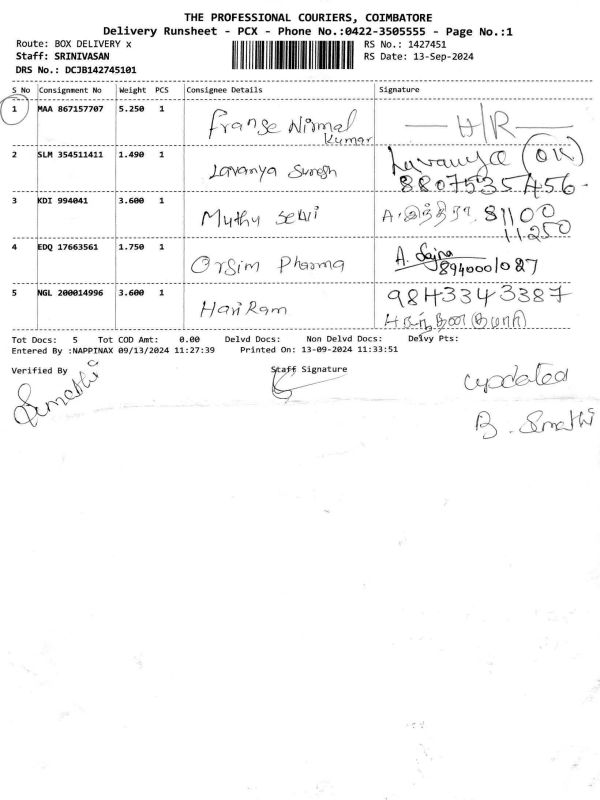 THE PROFESSIONAL COURIERS, COIMBATORE
Delivery Runsheet - PCX - Phone No.:0422-3505555 - Page No.:1
Route: BOX DELIVERY x
RS No.: 1427451
Staff: SRINIVASAN
RS Date: 13-Sep-2024
DRS No.: DCJB142745101
S No Consignment No Weight PCS Consignee Details Signature
1 MAA 867157707 5.250 1 Franse Nirmal Kumar — H/R —
2 SLM 354511411 1.490 1 Lavanya Suresh Lavanya OK
8807535456
3 KDI 994041 3.600 1 Muthu Selvi A. இந்திரா 81100
11250
4 EDQ 17663561 1.750 1 Orsim Pharma A. Sajna
8940001087
5 NGL 200014996 3.600 1 HariRam 9843343387
Tot Docs: 5 Tot COD Amt: 0.00 Delvd Docs: Non Delvd Docs: Delvy Pts:
Entered By :NAPPINAX 09/13/2024 11:27:39 Printed On: 13-09-2024 11:33:51
Verified By Staff Signature
Sumathi updated
B. Sumathi